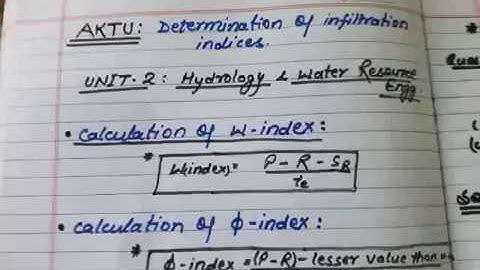 AKTU: Determination of infiltration
indices.
UNIT-2: Hydrology & Water Resource
Engg.
• Calculation of W-index:
* W(index)= P - R - SR / te
• Calculation of ϕ-index:
* ϕ-index = (P-R) - lesser value than